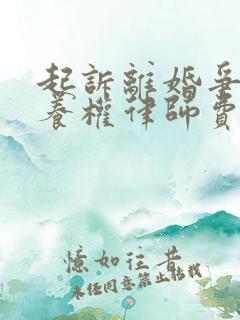 起訴離婚爭
養權律師費
憶如往昔
未任同意禁止轉載